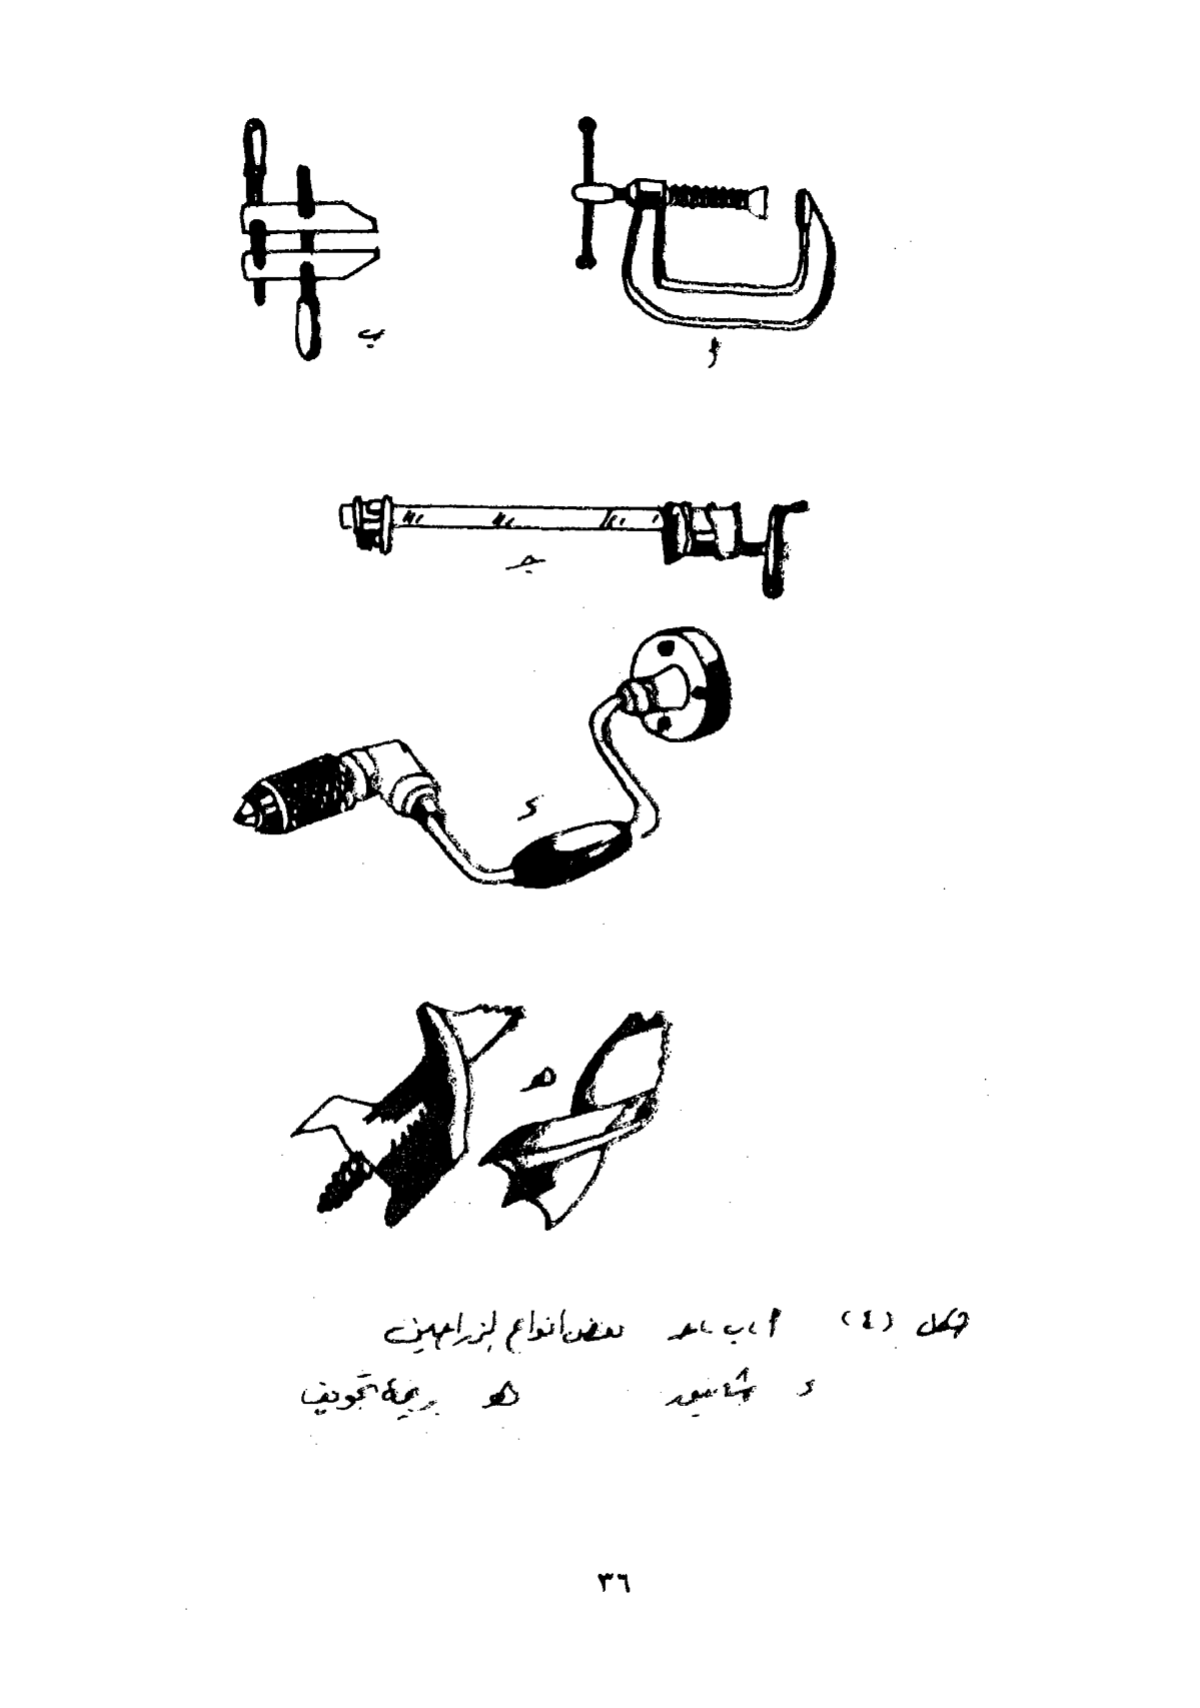 ب
أ
جـ
د
هـ
شكل (٤) أ، ب، جـ بعض أنواع الزراجين
د شانيور هـ بريمة تجويف
٣٦